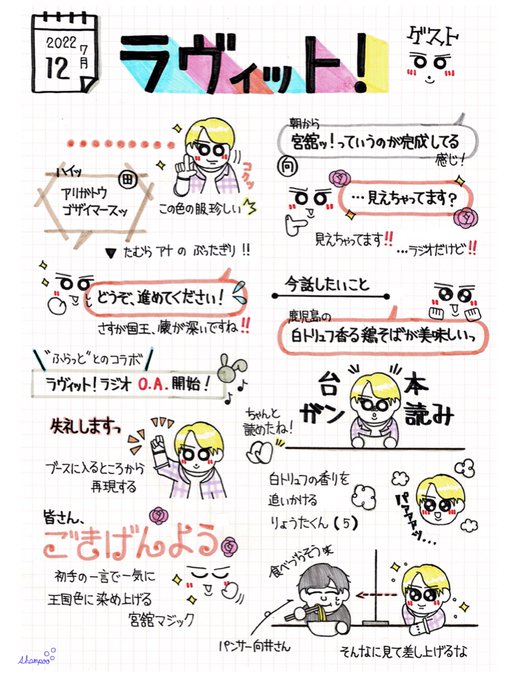 2022
7月
12
ラヴィット!
ゲスト
ハイッ
田
アリガトウ
ゴザイマースッ
コクッ
この色の服、珍しい
▼ たむら アナ の ぶったぎり !!
どうぞ、進めてください!
さすが国王、懐が深いですね!!
"ふらっと"とのコラボ
ラヴィット!ラジオ O.A. 開始!
失礼しますっ
ブースに入るところから
再現する
皆さん、
ごきげんよう
初手の一言で一気に
王国色に染め上げる
宮舘マジック
朝から
宮舘ッ!っていうのが完成してる
感じ!
向
…見えちゃってます?
見えちゃってます!!
…ラジオだけど!!
今話したいこと
鹿児島の
白トリュフ香る鶏そばが美味しいっ
台本
ガン読み
ちゃんと
読めたね!
白トリュフの香りを
追いかける
りょうたくん (5)
パァァァッ…
食べづらそう
パンサー向井さん
そんなに見て差し上げるな
Shampoo